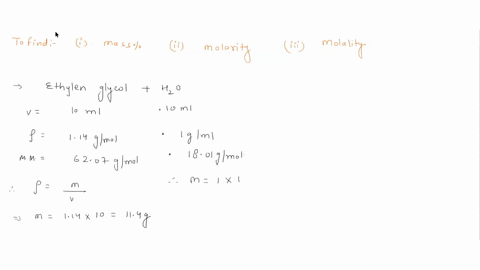 To find:- (i) mass% (ii) molarity (iii) molality
→ Ethylen glycol + H₂O
V = 10 ml · 10 ml
ρ = 1.14 g/mol · 1 g/ml
MM = 62.07 g/mol · 18.01 g/mol
∴ ρ = m/v ∴ m = 1 × 1
≈ m = 1.14 × 10 = 11.4 g